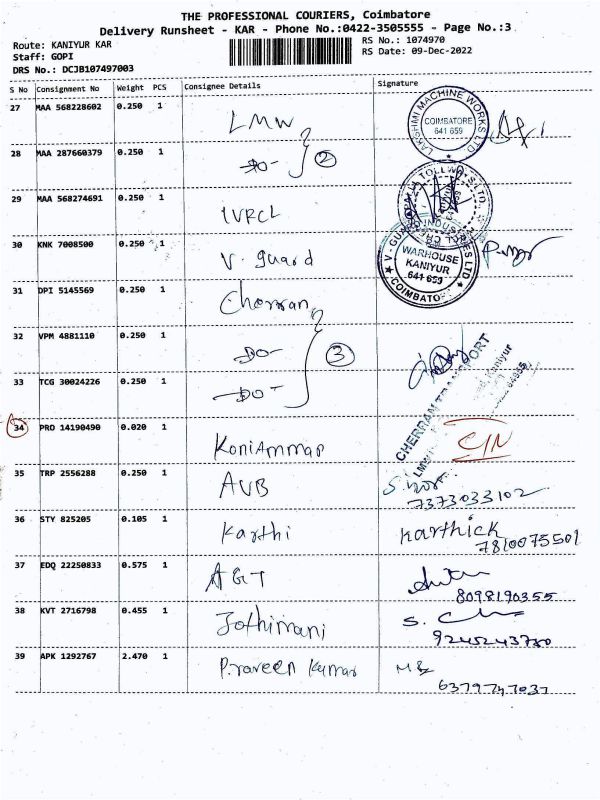 THE PROFESSIONAL COURIERS, Coimbatore
Delivery Runsheet - KAR - Phone No.:0422-3505555 - Page No.:3
Route: KANIYUR KAR
RS No.: 1074970
Staff: GOPI
RS Date: 09-Dec-2022
DRS No.: DCJB107497003
S No Consignment No Weight PCS Consignee Details Signature
27 MAA 568228602 0.250 1 LMW
LAKSHMI MACHINE WORKS LTD. COIMBATORE 641 659
28 MAA 287660379 0.250 1 -DO- 2
29 MAA 568274691 0.250 1 IVRCL
30 KNK 7008500 0.250 1 V. Guard
V-GUARD INDUSTRIES LTD WARHOUSE KANIYUR 641 659 COIMBATORE
31 DPI 5145569 0.250 1 Cherran
32 VPM 4881110 0.250 1 -DO- 3
33 TCG 30024226 0.250 1 -DO-
CHERRAM TRANSPORT
34 PRD 14190490 0.020 1 KoniAmman
35 TRP 2556288 0.250 1 AVB
7373033102
36 STY 825205 0.105 1 Karthi Karthick
7810075501
37 EDQ 22250833 0.575 1 AGT
8098190355
38 KVT 2716798 0.455 1 Jothimani
9245243730
39 APK 1292767 2.470 1 Praveen Kumar
6379747037